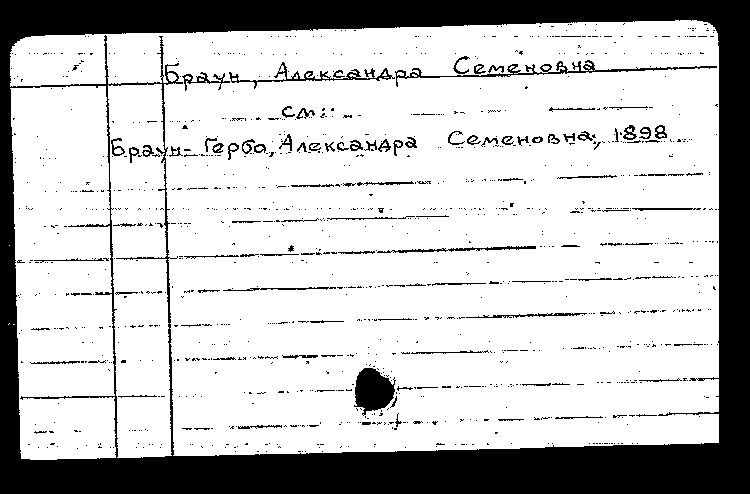 Браун, Александра Семеновна
см.:
Браун-Герба, Александра Семеновна, 1898